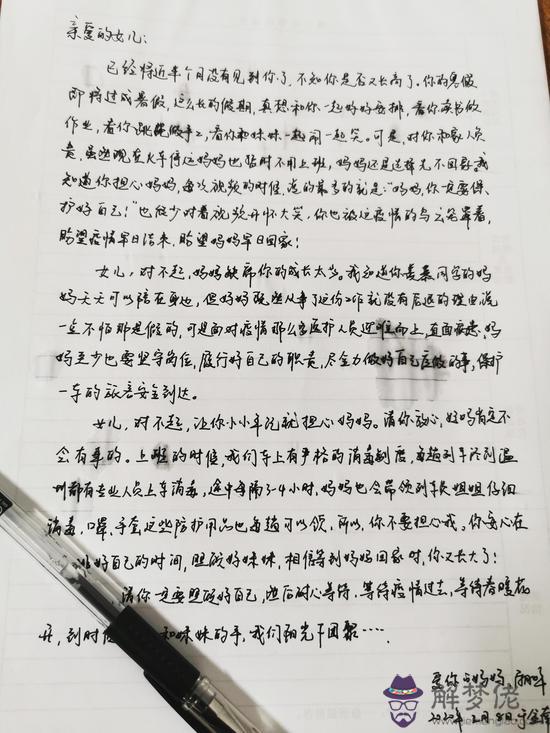 亲爱的女儿:
已经将近半个月没有见到你了,不知你是否又长高了。你的寒假
即将过成暑假,这么长的假期,真想和你一起好好安排,看你读书做
作业,看你跳绳做手工,看你和妹妹一起闹一起笑。可是,对你和家人负
责,虽然现在火车停运妈妈也暂时不用上班,妈妈还是选择先不回家。我
知道你担心妈妈,每次视频的时候,说的最多的就是“妈妈,你一定要保
护好自己!”也很少对着视频开怀大笑,你也被这疫情的乌云笼罩着,
盼望疫情早日结束,盼望妈妈早日回家!
女儿,对不起,妈妈缺席你的成长太多。我知道你羡慕同学的妈
妈天天可以陪在身边,但妈妈既然从事了这份工作就没有后退的理由,说
一点不怕那是假的,可是面对疫情那么多医护人员迎难向上,直面病患,妈
妈至少也要坚守岗位,履行好自己的职责,尽全力做好自己应做的事,保护
一车的旅客安全到达。
女儿,对不起,让你小小年纪就担心妈妈。请你放心,妈妈肯定不
会有事的。上班的时候,我们车上有严格的消毒制度,每趟列车终到温
州都有专业人员上车消毒,途中每隔3-4小时,妈妈也会带领列车员姐姐仔细
消毒,口罩,手套这些防护用品也每趟可以领,所以,你不要担心我。你安心在
好自己的时间,照顾好妹妹,相信等到妈妈回家时,你又长大了!
请你一定要照顾好自己,然后耐心等待,等待疫情过去,等待春暖花
开,到时候 和妹妹的手,我们阳光下团聚……
爱你的妈妈
2020年2月8日,于金华
解梦佬